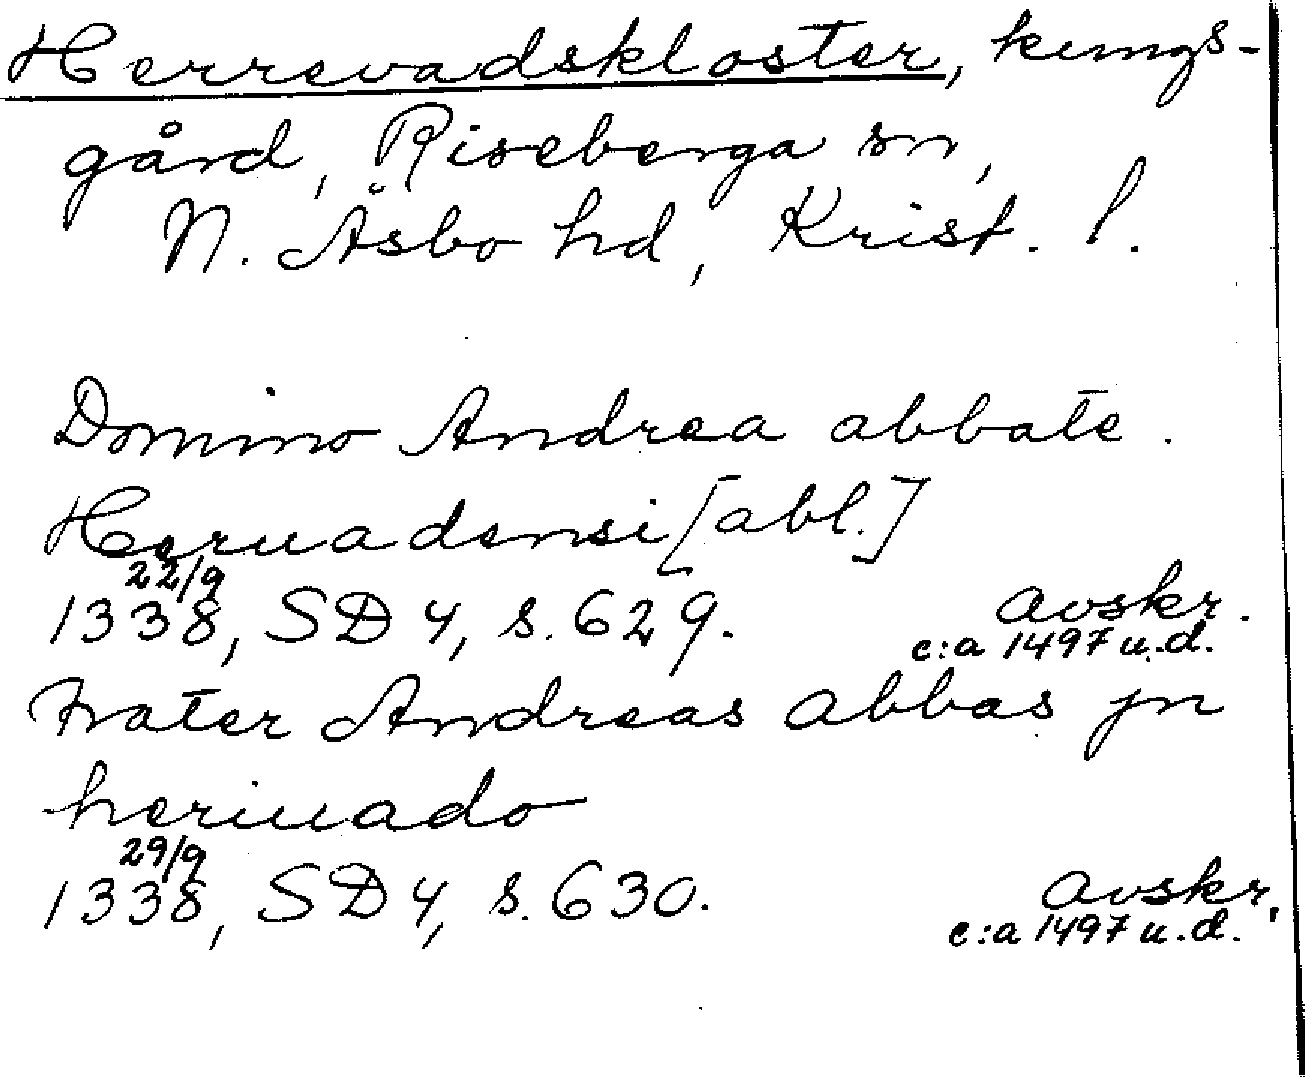 Herrevadskloster, kungs-
gård, Riseberga sn,
N. Åsbo hd, Krist. l.
Domino Andrea abbate.
Heruadensi [abl.]
22/9
1338, SD 4, s. 629. avskr.
c:a 1497 u.d.
Frater Andreas abbas jn
heriuado
29/9
1338, SD 4, s. 630. avskr.
c:a 1497 u.d.